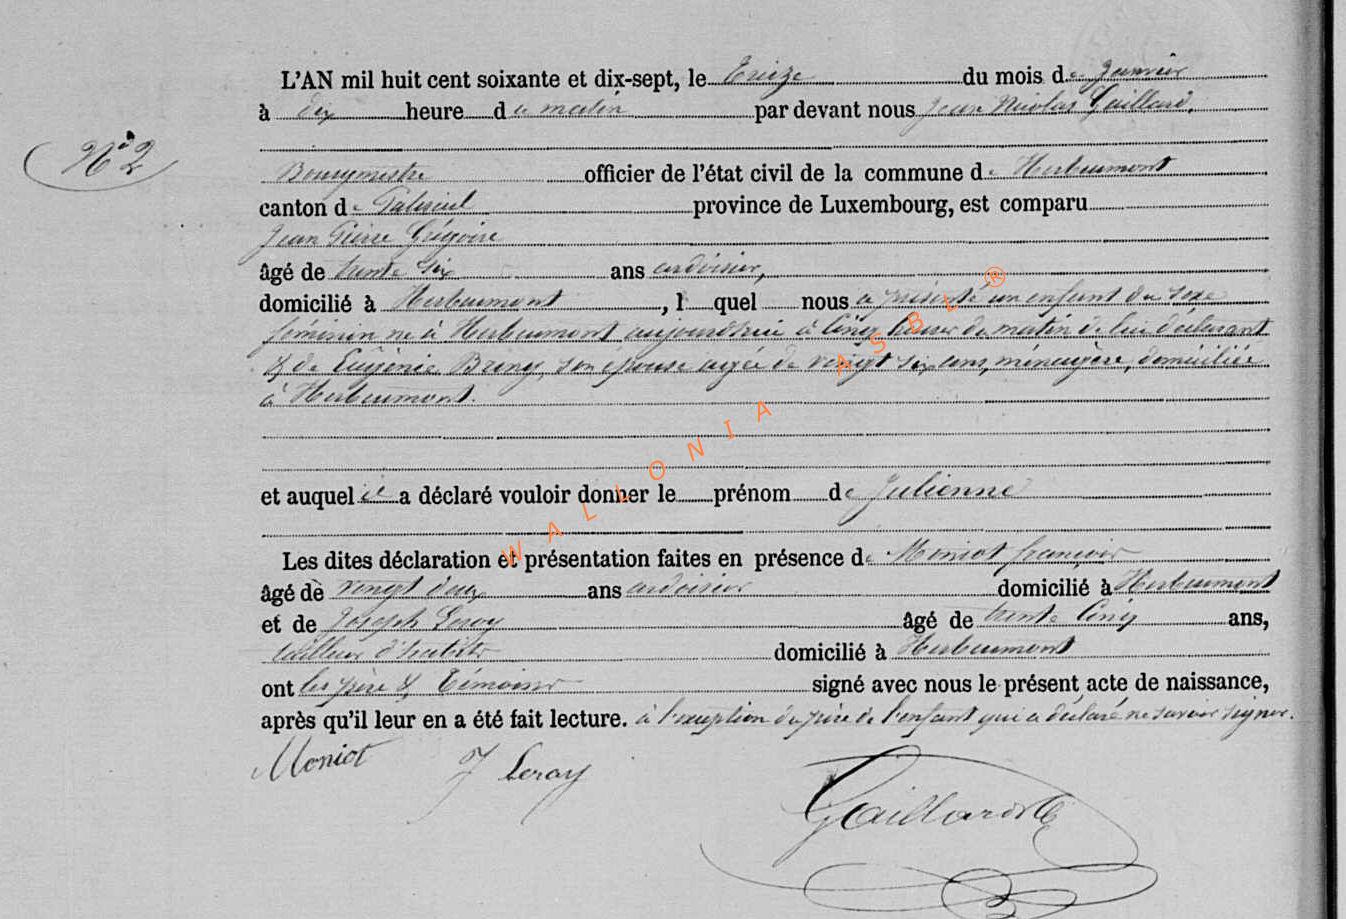 L'AN mil huit cent soixante et dix-sept, le treize du mois de Janvier
à dix heure du matin par devant nous Jean Nicolas Gaillard,
N° 2
Bourgmestre officier de l'état civil de la commune de Herbeumont
canton de Paliseul province de Luxembourg, est comparu
Jean Pierre Grégoire
âgé de trente six ans ardoisier,
domicilié à Herbeumont, lequel nous a présenté un enfant du sexe
féminin né à Herbeumont aujourd'hui à cinq heures du matin de lui déclarant
& de Eugénie Bring, son épouse agée de vingt six ans, ménagère, domiciliée
à Herbeumont.
et auquel il a déclaré vouloir donner le prénom de Julienne
Les dites déclaration et présentation faites en présence de Moniot françois
âgé de vingt deux ans ardoisier domicilié à Herbeumont
et de Joseph Leroy âgé de trente cinq ans,
tailleur d'habits domicilié à Herbeumont
ont les père & témoins signé avec nous le présent acte de naissance,
après qu'il leur en a été fait lecture. à l'exception du père de l'enfant qui a déclaré ne savoir signer.
Moniot J Leroy
Gaillard
WALLONIA ASBL ®